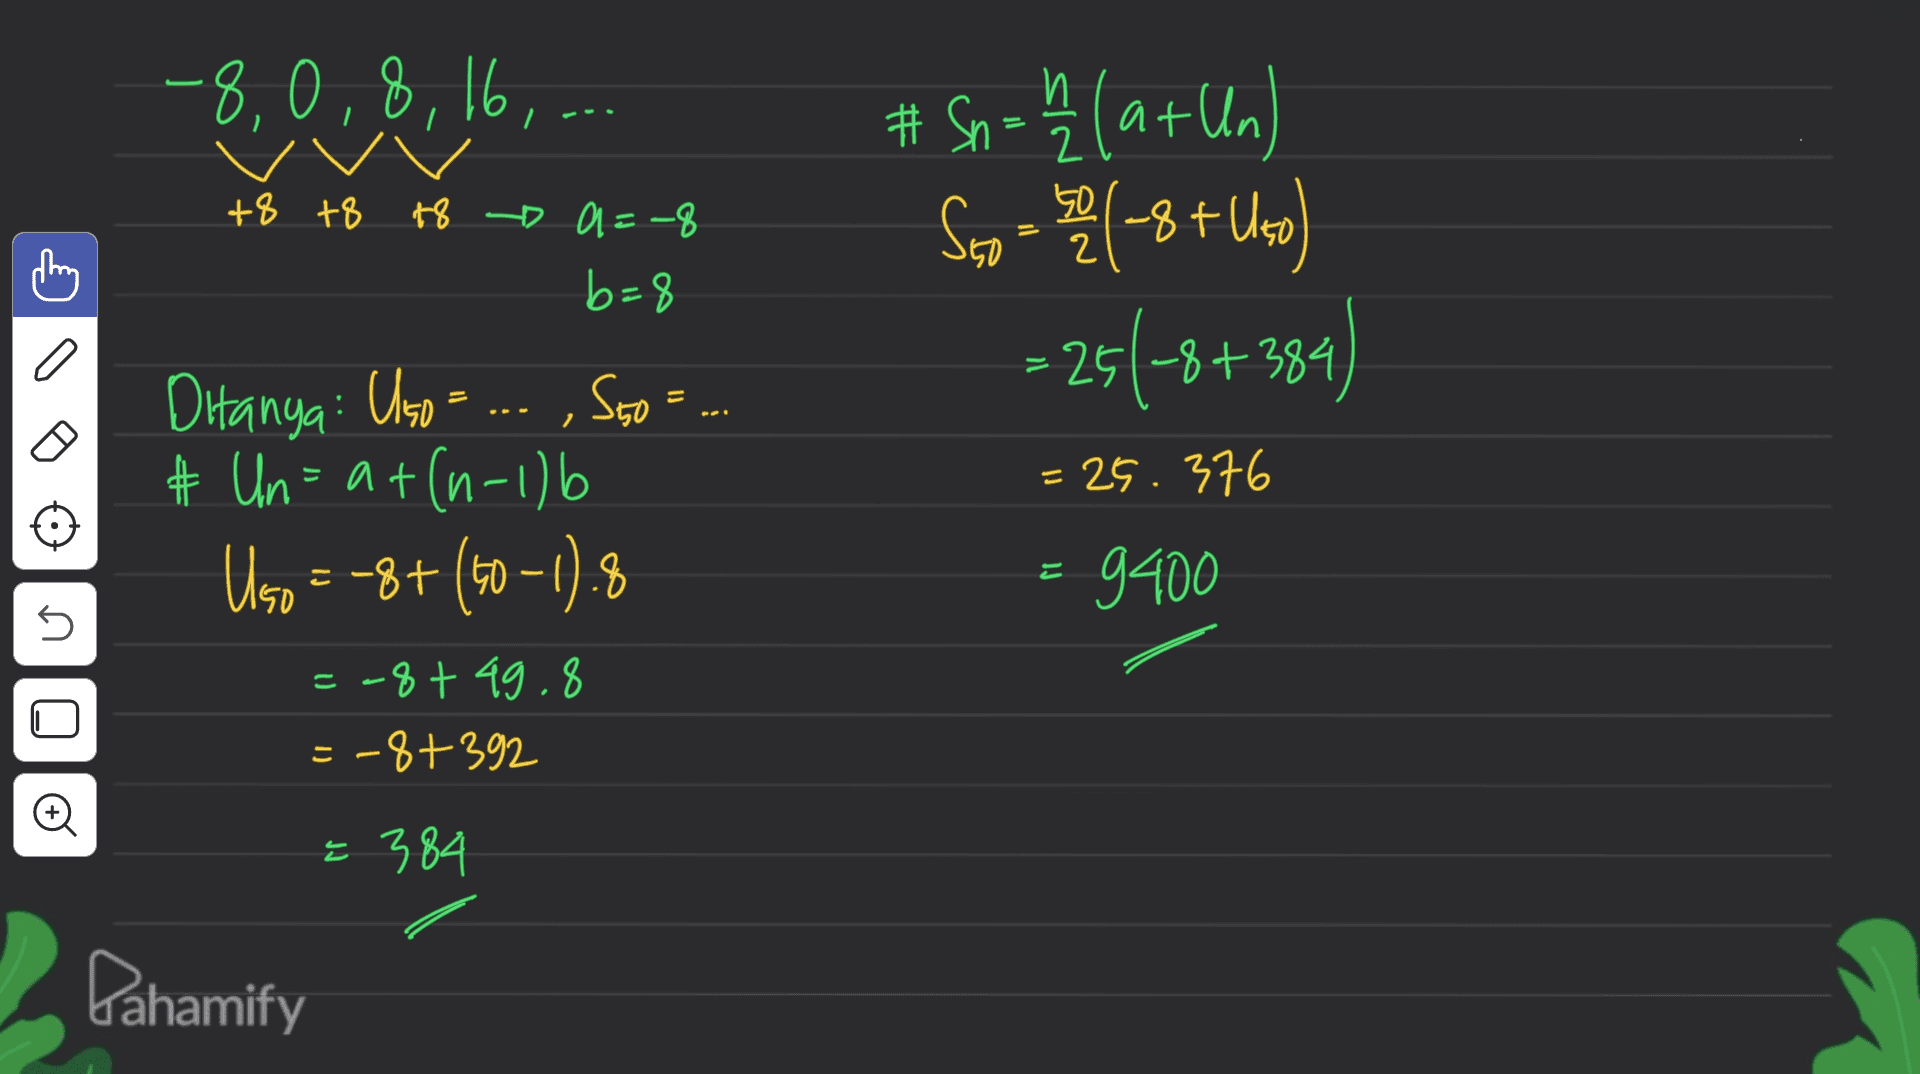 -8, 0, 8, 16, ...
+8 +8 +8 → a = -8
b = 8
Ditanya: U50 = ... , S50 = ...
# Un = a + (n-1)b
U50 = -8 + (50-1).8
= -8 + 49.8
= -8 + 392
= 384
# Sn = n/2 (a + Un)
S50 = 50/2 (-8 + U50)
= 25(-8 + 384)
= 25. 376
= 9400
Pahamify